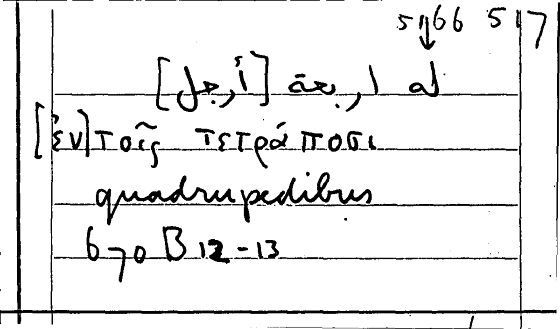 5166 517
له اربعة [أرجل]
[ἐν] τοῖς τετράποσι
quadrupedibus
670 B 12-13